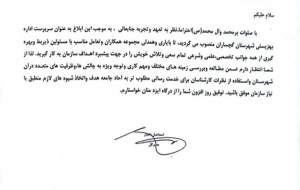 سلام علیکم
با صلوات بر محمد وآل محمد(ص)؛نظر به تعهد وتجربه جنابعالی ، به موجب این ابلاغ به عنوان سرپرست اداره
بهزیستی شهرستان گچساران منصوب می گردید، تا بایاری وهمدلی مجموعه همکاران وتعامل مناسب با مسئولین ذیربط وبهره
گیری از همه جوانب تخصصی،علمی وشرعی تمام سعی وتلاش خویش را در جهت پیشبرد اهداف سازمان به کار گیرید. لذا از
شما انتظار دارم ضمن مطالعه وبررسی زمینه های مختلف ومهم کاری وتوجه ویژه به چالش هاوظرفیت های متعدد درآن
شهرستان واستفاده از نظرات کارشناسان برای خدمت رسانی مطلوب تر به آحاد جامعه هدف واتخاذ شیوه های لازم منطبق با
نیاز سازمان موفق باشید. توفیق روز افزون شما را از درگاه ایزد منان خواستارم.